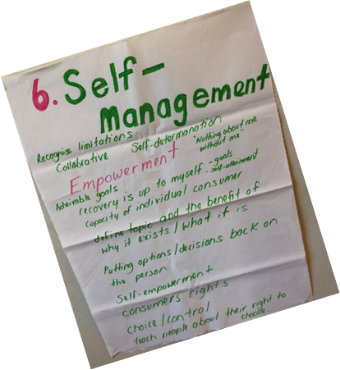 6. Self-
Management
Recognise limitations
Collabrative Self-determanation "Nothing about me
without me"
Empowerment
Attainable goals - goals
recovery is up to myself - self-attainment
Capacity of individual consumer
define topic and the benefit of
why it exists / what it is
Putting options/decisions back on
the person
Self-empowerment
consumers rights
Choice / control
teach people about their right to
choose